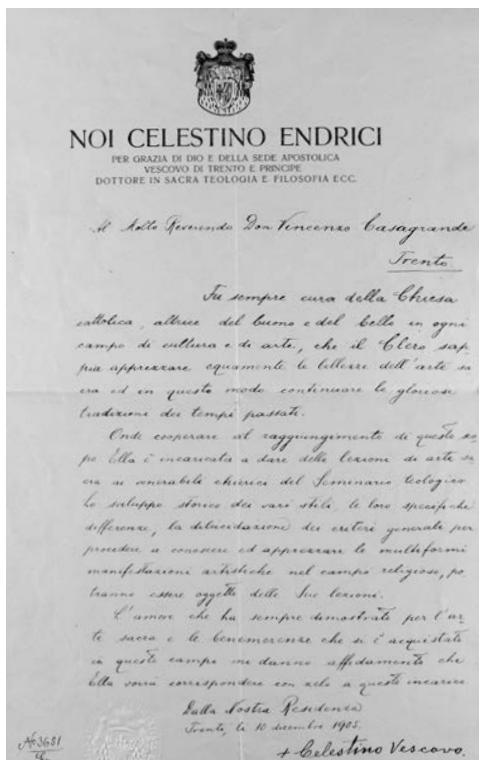 NOI CELESTINO ENDRICI
PER GRAZIA DI DIO E DELLA SEDE APOSTOLICA
VESCOVO DI TRENTO E PRINCIPE
DOTTORE IN SACRA TEOLOGIA E FILOSOFIA ECC.
Al Molto Reverendo Don Vincenzo Casagrande
Trento
Fu sempre cura della Chiesa
cattolica, altrice del buono e del bello in ogni
campo di cultura e di arte, che il Clero sap
pia apprezzare equamente le bellezze dell'arte sa
cra ed in questo modo continuare le gloriose
tradizioni dei tempi passati.
Onde cooperare al raggiungimento di questo sco
po Ella è incaricata a dare delle lezioni di arte sa
cra ai venerabili chierici del Seminario teologico
Lo sviluppo storico dei vari stili, le loro specifiche
differenze, la delucidazione dei criteri generali per
procedere a conoscere ed apprezzare le multiformi
manifestazioni artistiche nel campo religioso, po
tranno essere oggetto delle Sue lezioni.
L'amore che ha sempre dimostrato per l'ar
te sacra e le benemerenze che si è acquistate
in questo campo mi danno affidamento che
Ella vorrà corrispondere con zelo a questo incarico.
Dalla Nostra Residenza
Trento, li 10 dicembre 1905.
+ Celestino Vescovo.
No 3681